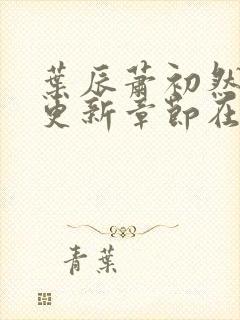 葉辰蕭初然
更新章節在
青葉